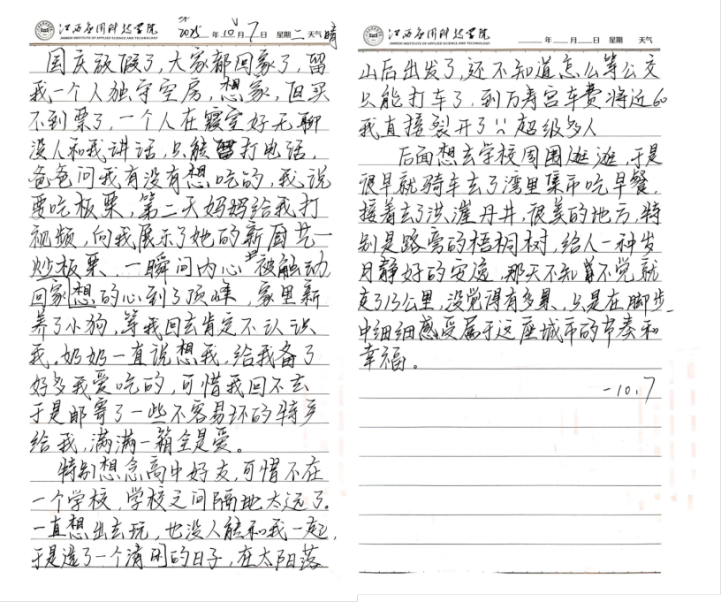 江西应用科技学院
JIANGXI INSTITUTE OF APPLIED SCIENCE AND TECHNOLOGY
2025年10月7日 星期二 天气 晴
国庆放假了,大家都回家了,留
我一个人独守空房,想家,但买
不到票了,一个人在寝室好无聊
没人和我讲话,只能打电话,
爸爸问我有没有想吃的,我说
要吃板栗,第二天妈妈给我打
视频,向我展示了她的新厨艺一
炒板栗,一瞬间内心被触动
回家想的心到了顶峰,家里新
养了小狗,等我回去肯定不认识
我,奶奶一直说想我,给我备了
好多我爱吃的,可惜我回不去
于是邮寄了一些不容易坏的特产
给我,满满一箱全是爱。
特别想念高中好友,可惜不在
一个学校,学校之间隔地太远了。
一直想出去玩,也没人能和我一起,
于是逢了一个清闲的日子,在太阳落
江西应用科技学院
JIANGXI INSTITUTE OF APPLIED SCIENCE AND TECHNOLOGY
年 月 日 星期 天气
山后出发了,还不知道怎么等公交
只能打车了,到万寿宫车费将近60
我直接裂开了!! 超级多人
后面想去学校周围逛逛,于是
很早就骑车去了湾里集市吃早餐,
接着去了洪崖丹井,很美的地方,特
别是路旁的梧桐树,给人一种岁
月静好的安逸,那天不知不觉就
走了13公里,没觉得有多累,只是在脚步
中细细感受属于这座城市的节奏和
幸福。
-10.7